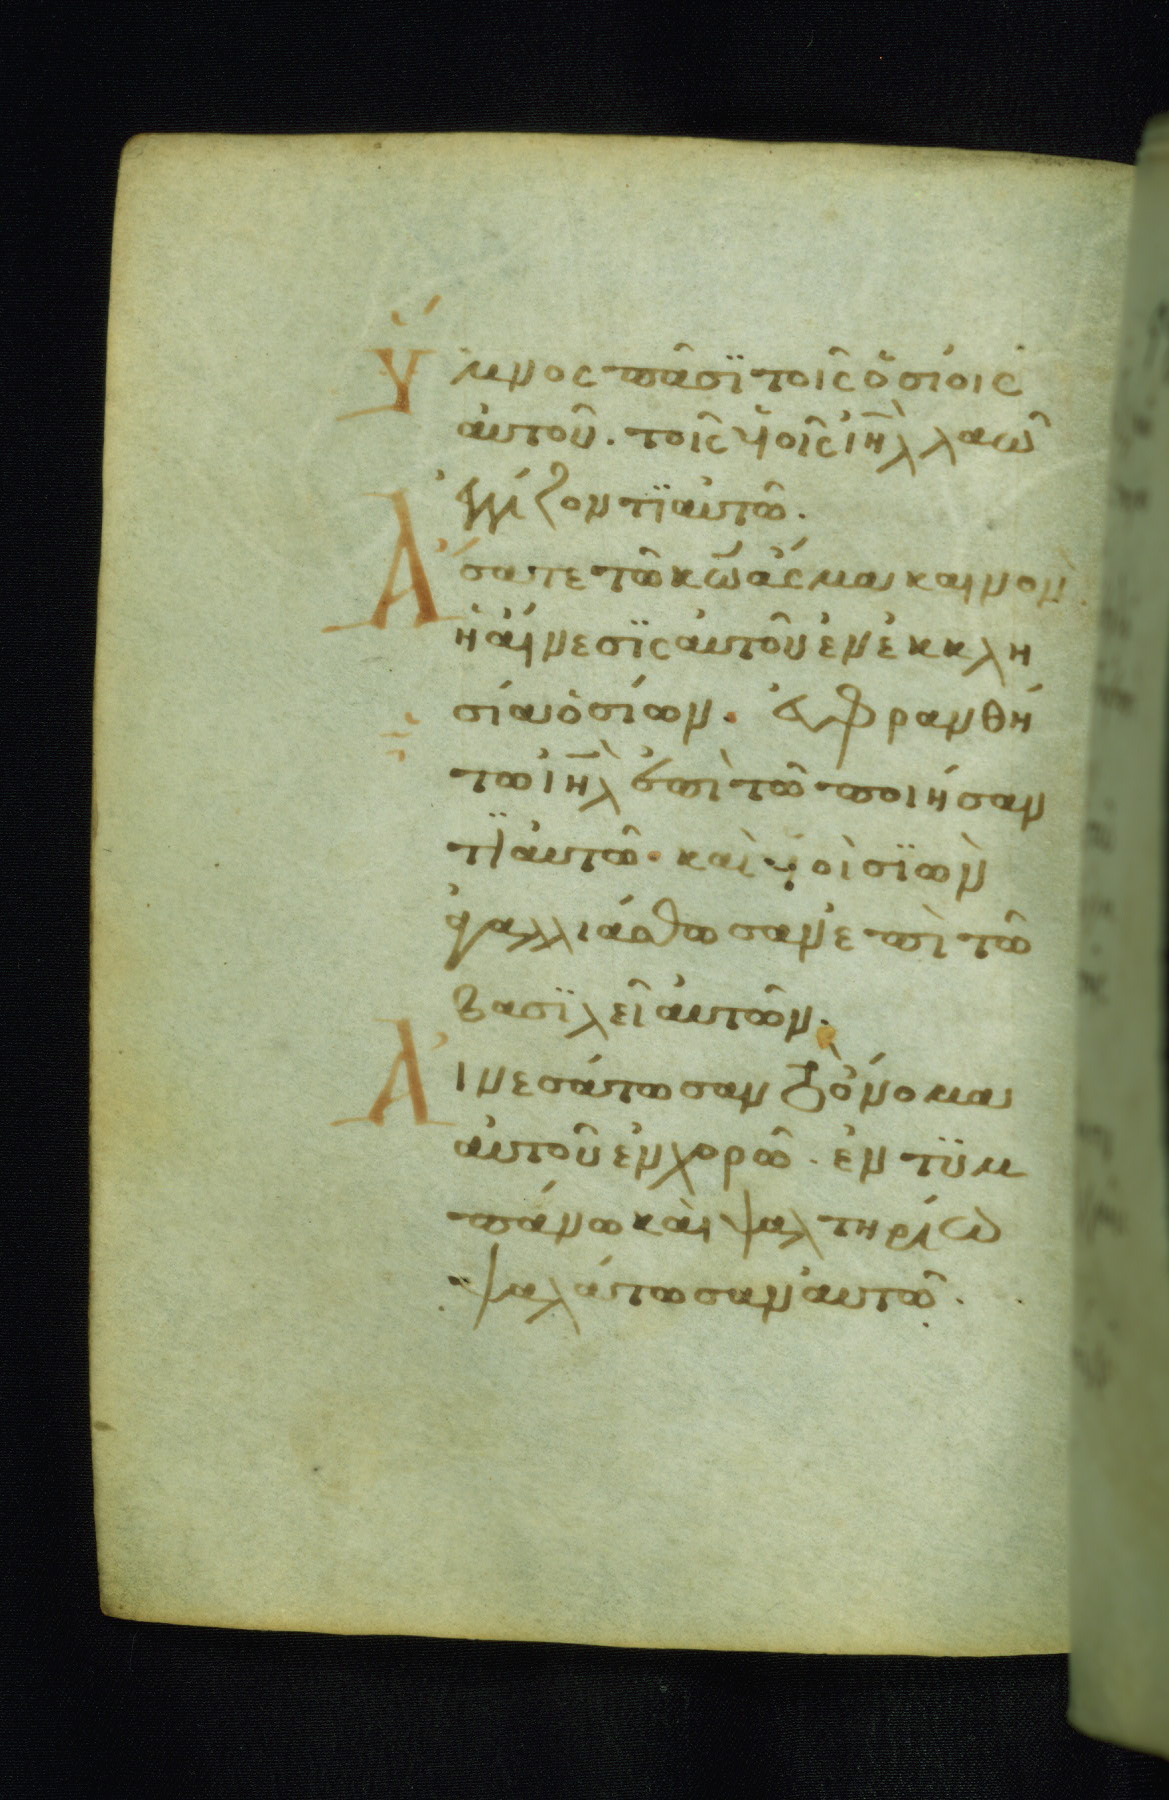 Ὕμνος πᾶσϊ τοῖς ὁσίοις
αὐτοῦ. τοῖς υἱοῖς ἰηλ λαῶ
ἐγγίζοντϊ αὐτῶ.
Ἄσατε τῶ κω ἆσμα καινὸν.
ἡ αἴνεσϊς αὐτοῦ ἐν ἐκκλη
σία ὁσίων. εὐφρανθή
τω ἰηλ ἐπὶ τῶ ποιήσαν
τϊ αὐτῶ. καὶ υἱοὶ σϊὼν
ἀγαλλιάσθωσαν ἐπὶ τῶ
βασϊλεῖ αὐτῶν.
Αἰνεσάτωσαν τὸ ὄνομα
αὐτοῦ ἐν χορῶ. ἐν τϋμ
πάνω καὶ ψαλτηρίω
ψαλάτωσαν αὐτῶ.